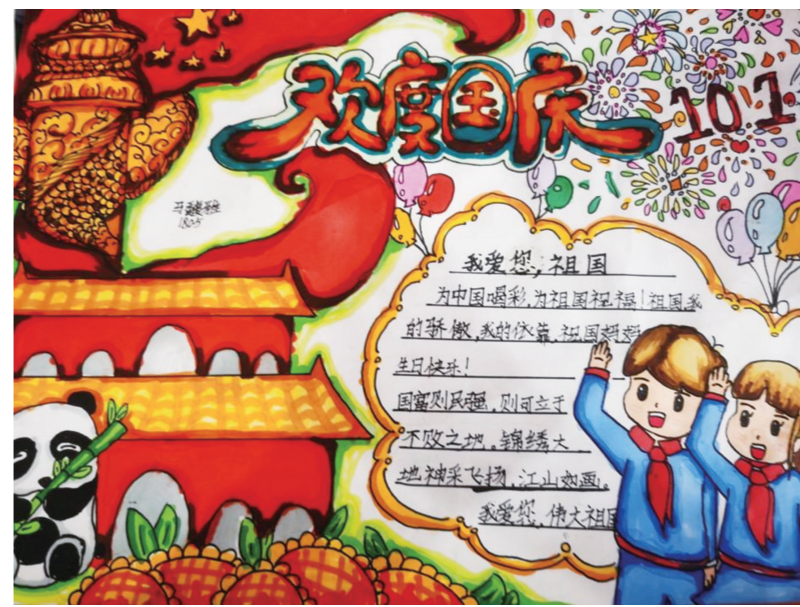 欢度国庆
10.1
1805
我爱您,祖国
为中国喝彩,为祖国祝福!祖国我
的骄傲,我的依靠,祖国妈妈
生日快乐!
国富则民强,则可立于
不败之地。锦绣大
地神采飞扬,江山如画。
我爱您,伟大祖国